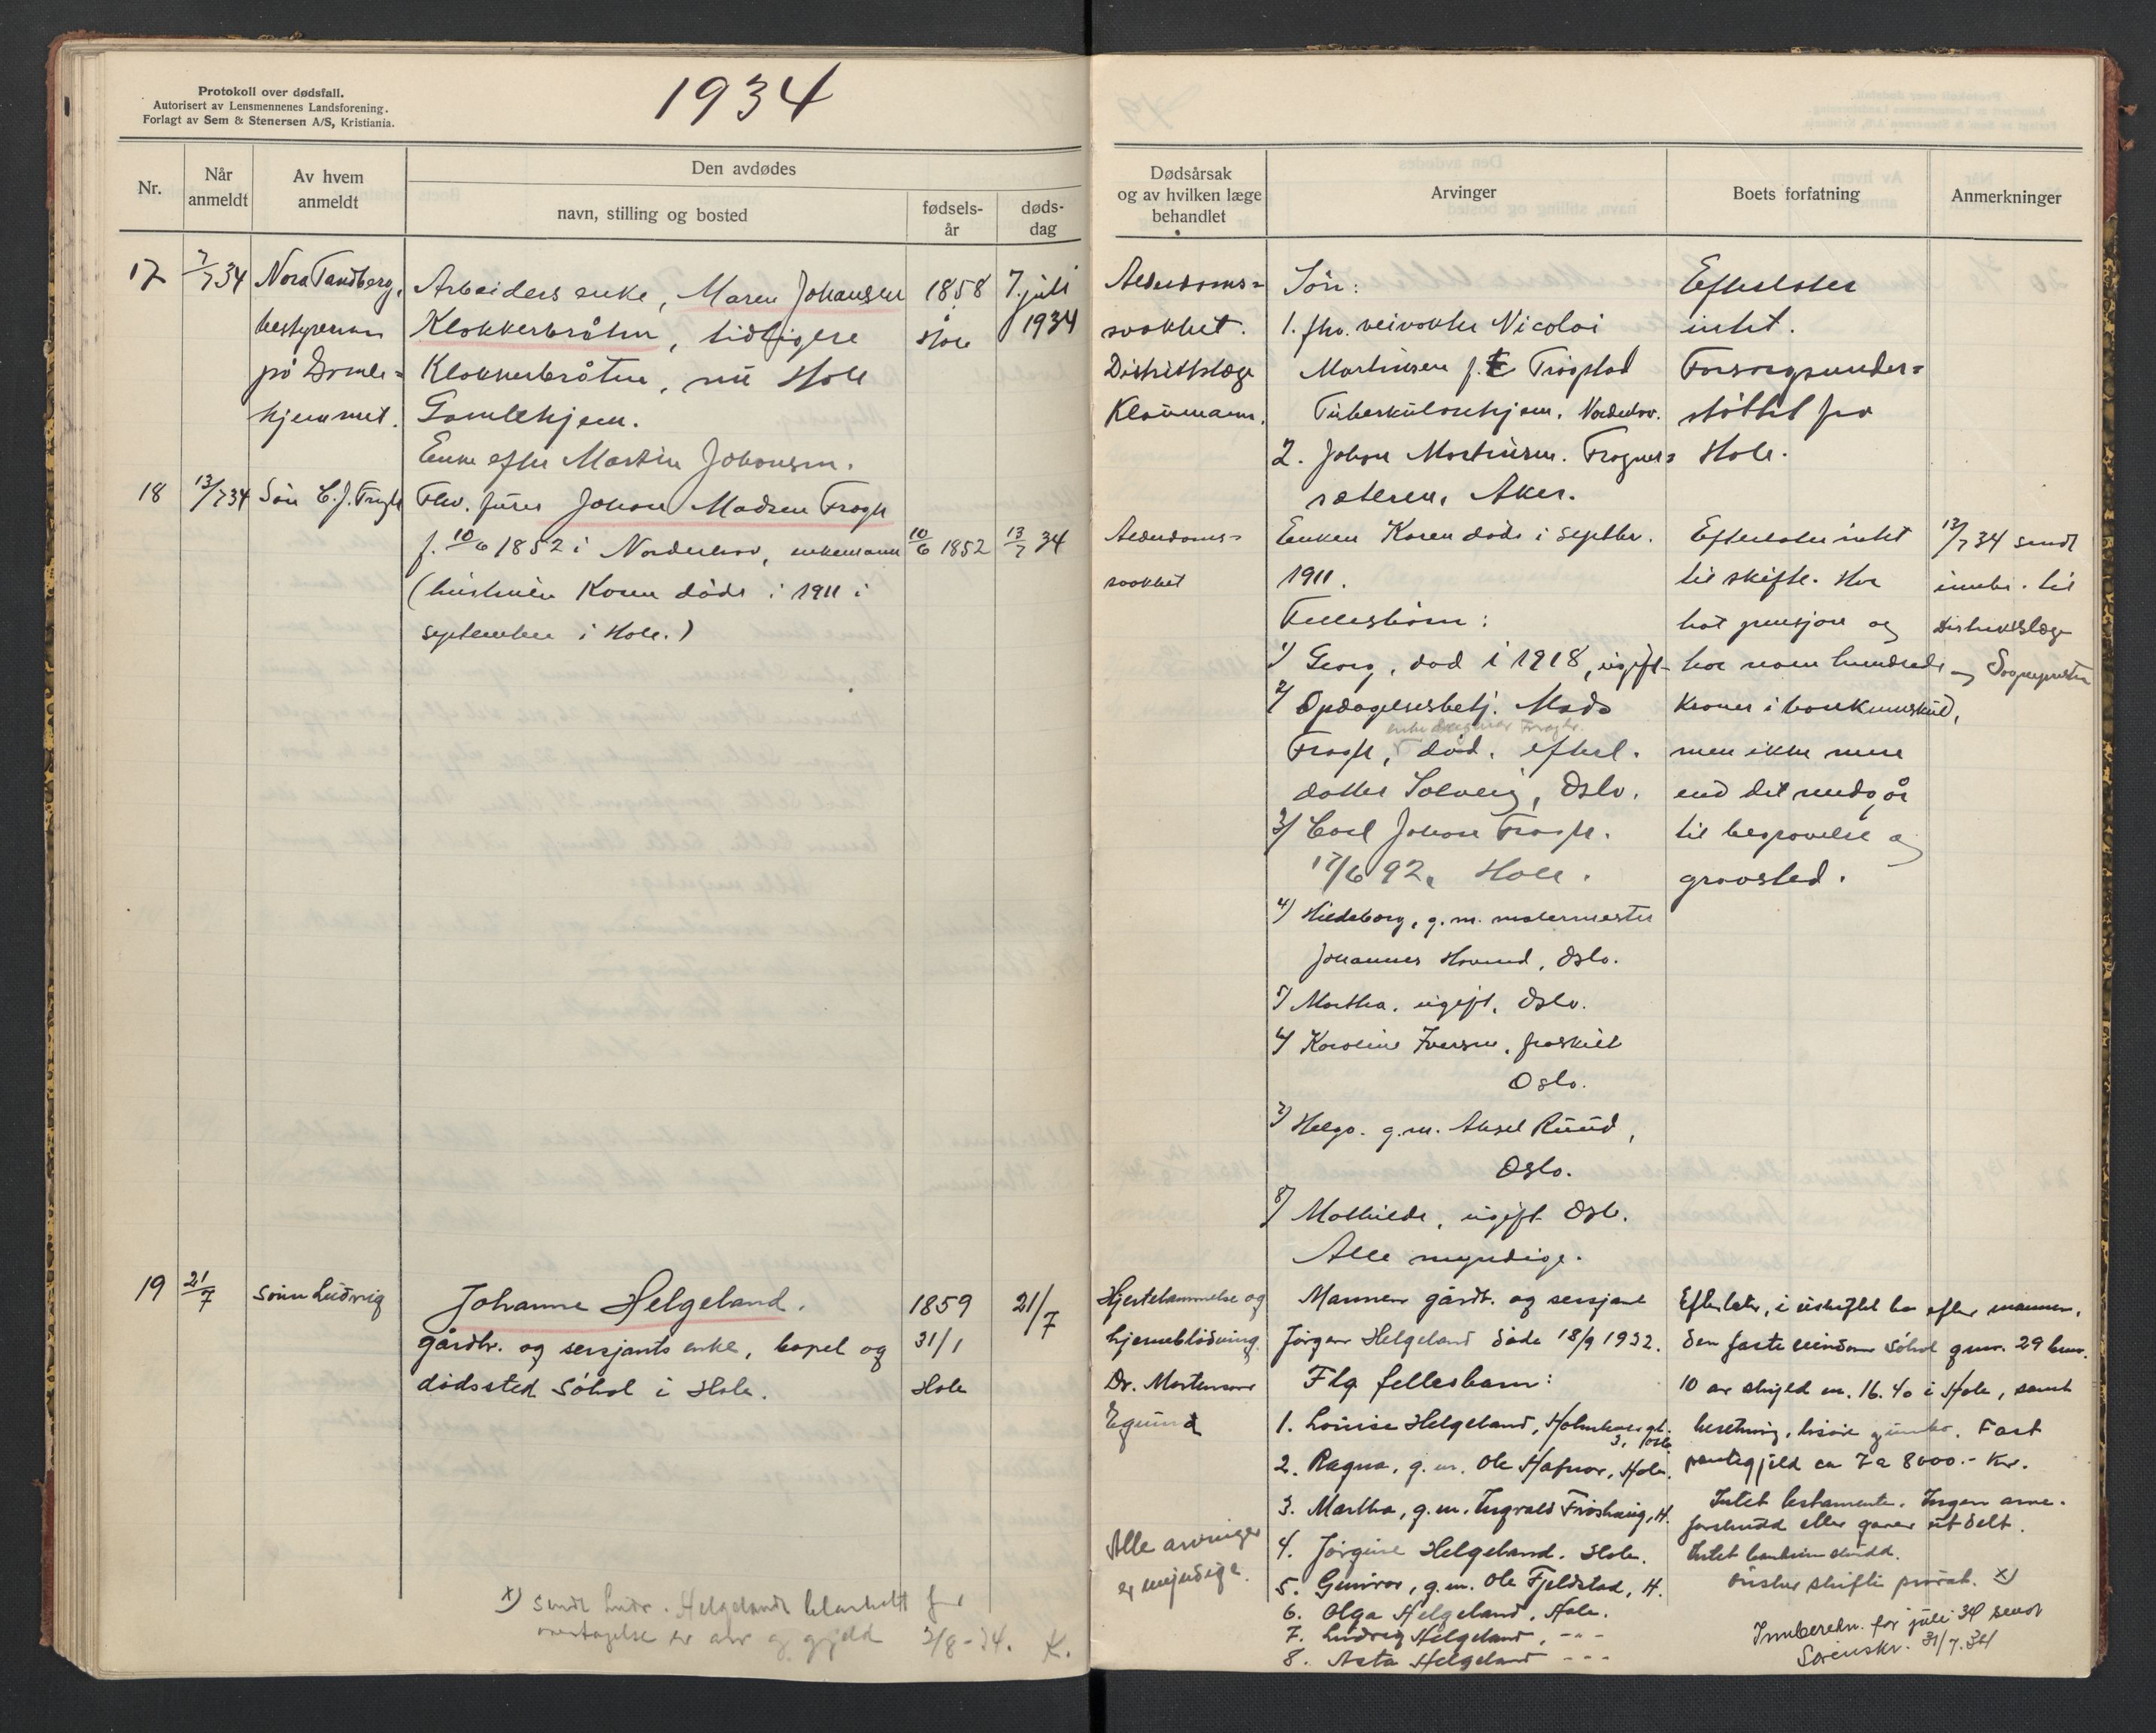 Protokoll over dødsfall.
Autorisert av Lensmennenes Landsforening.
Forlagt av Sem & Stenersen A/S, Kristiania.
1934
Nr.
Når anmeldt
Av hvem anmeldt
Den avdødes
navn, stilling og bosted
fødsels-år
døds-dag
17
7/7 34
Nora Tandberg,
bestyrerinne
på Gamle=
hjemmet.
Arbeiders enke, Maren Johansen
Klokkerbråten, tidligere
Klokkerbråten, nu Hole
Gamlehjem.
Enke efter Martin Johansen.
1858
Hole
7. juli
1934
18
13/7 34
Søn C. J. Frogh
Fhv. furer Johan Madsen Frogh
f. 10/6 1852 i Norderhov, enkemann
(hustruen Karen døde i 1911 i
september i Hole.)
10/6 1852
13/7 34
19
21/7
Sønn Ludvig
Johanne Helgeland.
gårdbr. og sersjants enke, bopel og
dødssted Söhol i Hole.
1859
31/1
Hole
21/7
x) Sendt Ludv. Helgeland blankett for
overtagelse av arv og gjeld 2/8-34. K.
Dødsårsak
og av hvilken læge
behandlet
Arvinger
Boets forfatning
Anmerkninger
Alderdoms=
svakhet.
Distriktslæge
Klaumann.
Søn:
1. fhv. veivokter Nicolai
Martinsen f. t. Trøgstad
Tuberkulosehjem, Norderhov.
2. Johan Martinsen. Frogner=
sæteren, Aker.
Efterlater
intet.
Forsorgsunder=
støttet fra
Hole.
Alderdoms=
svakhet
Enken Karen døde i septbr.
1911.
Fellesbørn:
1) Georg, død i 1918, ugift
2) Opdagelsesbetj. Mads
Frogh, død. efterl.
datter Solveig, Oslo.
3) Carl Johan Frogh.
17/6 92, Hole.
4) Hildeborg, g. m. malermester
Johannes Hovind, Oslo.
5) Martha, ugift, Oslo.
6) Karoline Iversen, fraskilt
Oslo.
7) Helga. g.m. Aksel Ruud,
Oslo.
8) Mathilde, ugift Oslo.
Alle myndige.
Efterlater intet
til skifte. Har
hat pensjon og
har noen hundrede
kroner i bankinnskud,
men ikke mere
end det medgår
til begravelse og
gravsted.
13/7 34 sendt
innb. til
Distriktslæge
og Sogneprestn
Hjertelammelse og
hjerneblødning.
Dr. Mortensen
Egeund
Alle arvinger
er myndige.
Mannen gårdbr. og sersjant
Jörgen Helgeland døde 18/9 1932.
Flg fellesbarn:
1. Louise Helgeland, Holmens gt.
3, Oslo
2. Ragna, g. m. Ole Hafnor, Hole.
3. Martha, g. m. Ingvald Frøshaug, H.
4. Jørgine Helgeland. Hole.
5. Gunvor, g. m. Ole Fjeldstad, H.
6. Olga Helgeland, Hole.
7. Ludvig Helgeland, -"-
8. Asta Helgeland -"-
Efterlater, i uskiftet bo efter mannen,
den faste eiendom Söhol gnr. 29 bnr.
10 av skyld m. 16.40 i Hole, samt
besetning, løsøre og innbo. Fast
pantegjeld ca 7 a 8000.- kr.
Intet testamente. Ingen arve-
forskudd eller gaver utdelt.
Intet bankinnskudd.
Ønsker skifte privat. x)
Innberedn. for juli 34 sendt
Sorenskr. 31/7.34